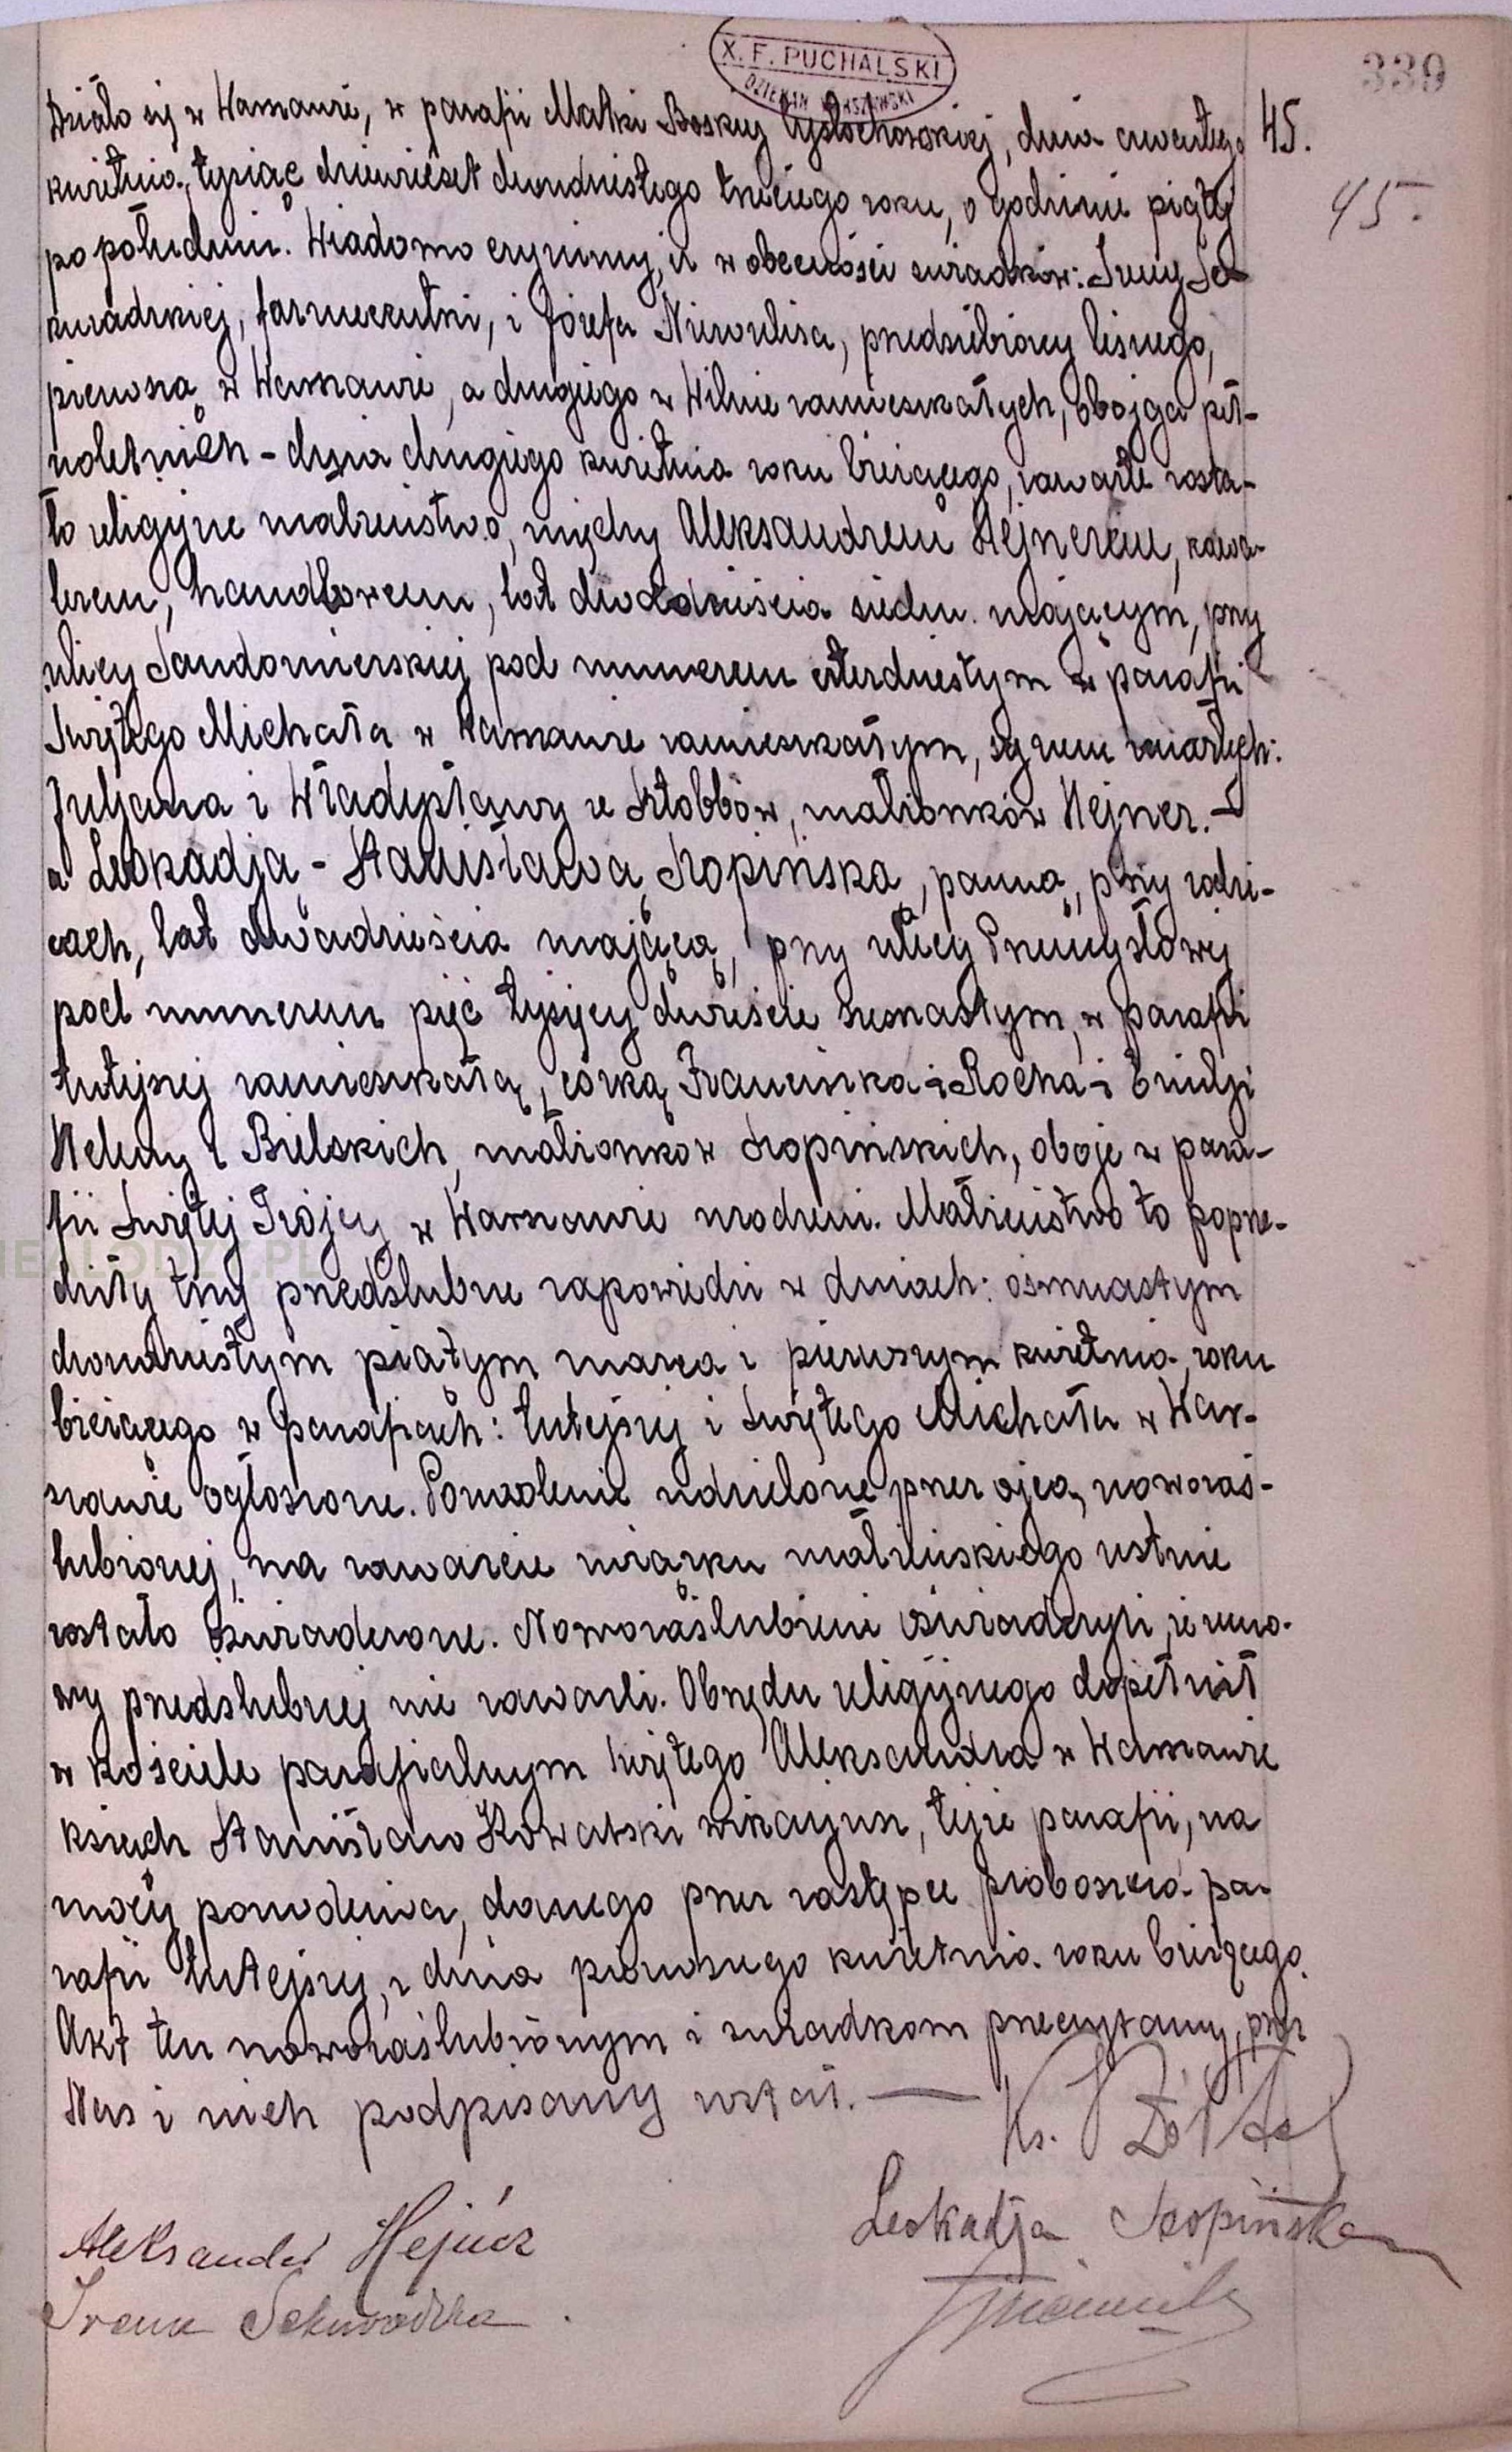 X. F. PUCHALSKI
DZIEKAN WARSZAWSKI
339
Działo się w Warszawie, w parafii Matki Boskiej Częstochowskiej, dnia czwartego 45.
kwietnia, tysiąc dziewięćset dwudziestego trzeciego roku, o godzinie piątej 45.
po południu. Wiadomo czynimy, iż w obecności świadków: Ireny Se-
kuradzkiej, farmaceutki, i Józefa Niewulisa, przedsiębiorcy leśnego,
pierwsza w Warszawie, a drugiego w Wilnie zamieszkałych, obojga peł-
noletnich - dnia drugiego kwietnia roku bieżącego, zawarte zosta-
ło religijne małżeństwo, między Aleksandrem Hejnerem, kawa-
lerem, handlowcem, lat dwadzieścia siedm mającym, przy
ulicy Sandomierskiej pod numerem czterdziestym w parafii
Świętego Michała w Warszawie zamieszkałym, synem zmarłych:
Juljana i Władysławy ze Sztobbów, małżonków Hejner. —
a Leokadją - Stanisławą Skopińską, panną, przy rodzi-
cach, lat dwadzieścia mającą, przy ulicy Przemysłowej
pod numerem pięć tysięcy dwieście szesnastym, w parafii
tutejszej zamieszkałą, córką Franciszka i Rocha i Emilji
Heleny z Bielskich, małżonków Skopińskich, oboje w para-
fii Świętej Trójcy w Warszawie urodzeni. Małżeństwo to poprze-
dziły trzy przedślubne zapowiedzi w dniach: osmnastym
dwudziestym piątym marca i pierwszym kwietnia roku
bieżącego w parafiach: tutejszej i Świętego Michała w War-
szawie ogłoszone. Pozwolenie udzielone przez ojca, nowozaś-
lubionej, na zawarcie związku małżeńskiego ustnie
zostało oświadczone. Nowozaślubieni oświadczyli, że umo-
wy przedślubnej nie zawarli. Obrzędu religijnego dopełnił
w kościele parafialnym Świętego Aleksandra w Warszawie
ksiądz Stanisław Kowalski wikarjusz, tejże parafii, na
mocy pozwolenia, danego przez zastępcę proboszcza pa-
rafii tutejszej, z dnia pierwszego kwietnia roku bieżącego.
Akt ten nowozaślubionym i świadkom przeczytany, przez
Nas i nich podpisany został. —
Ks.
Aleksander Hejner
Leokadja Skopińska
Irena